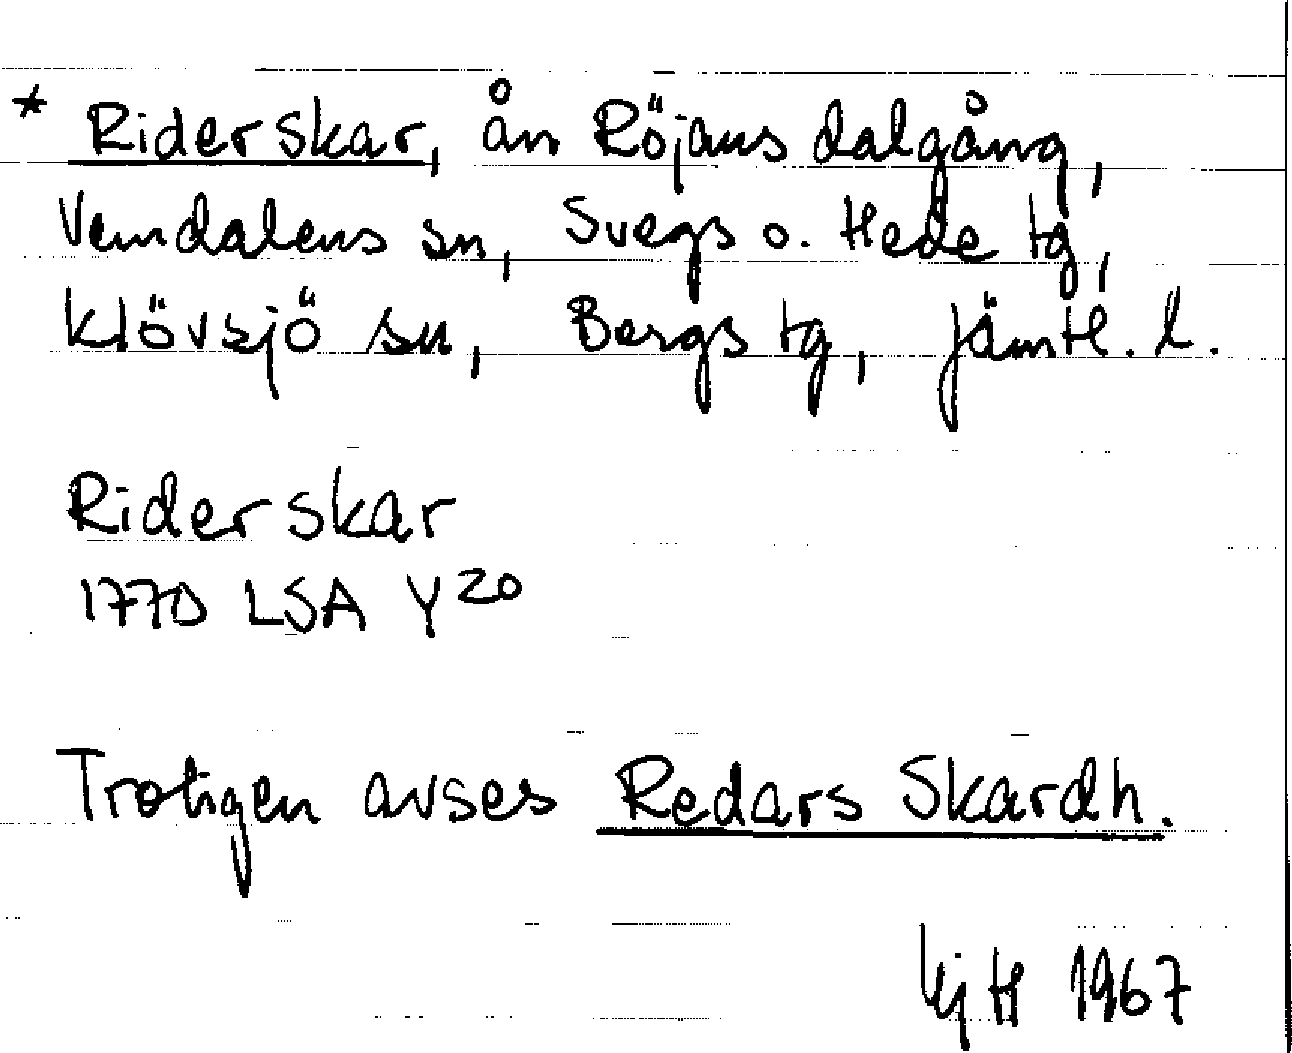 * Riderskar, ån Röjans dalgång,
Vemdalens sn, Svegs o. Hede tg,
Klövsjö sn, Bergs tg, Jämtl. l.
Riderskar
1770 LSA Y20
Troligen avses Redars Skardh.
1967